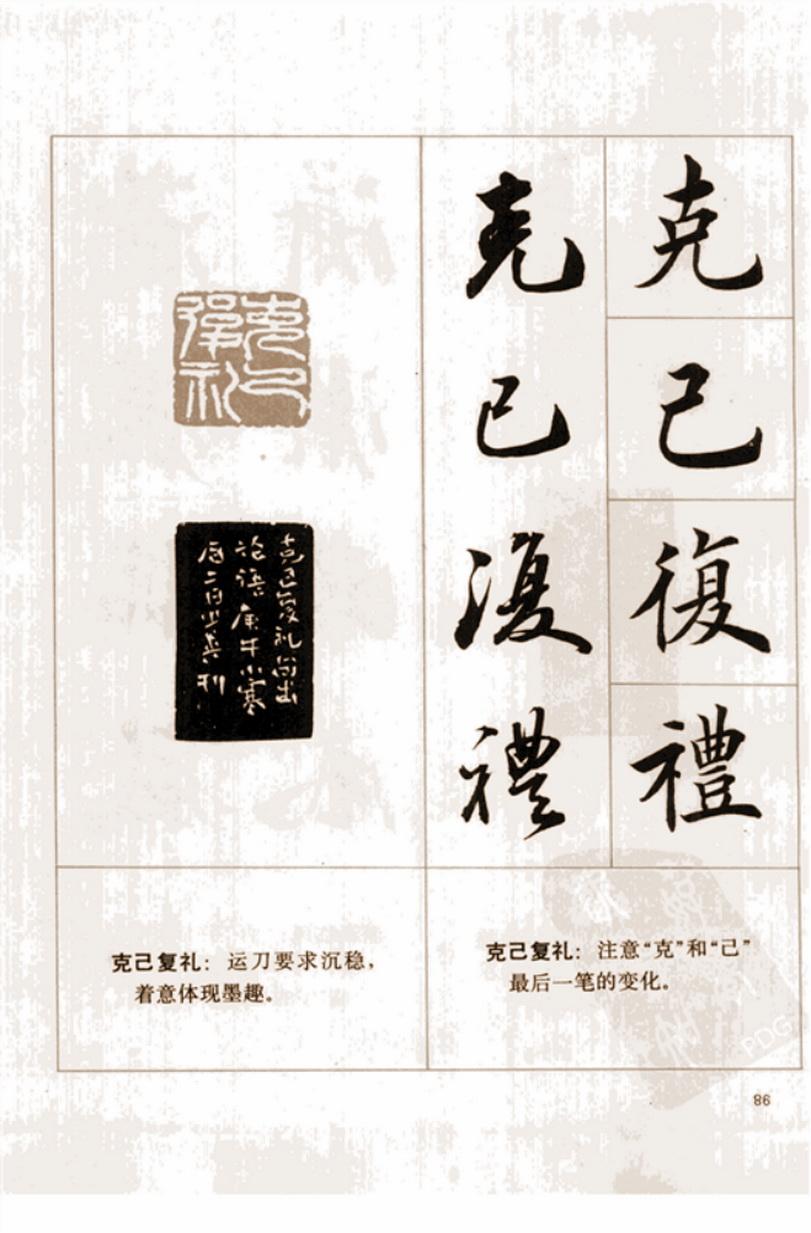 克己復禮
克己復禮
克己復礼
克己復礼尚出
论语庚午小寒
刊
克己复礼：注意“克”和“己”
最后一笔的变化。
克己复礼：运刀要求沉稳，
着意体现墨趣。
86
PDG